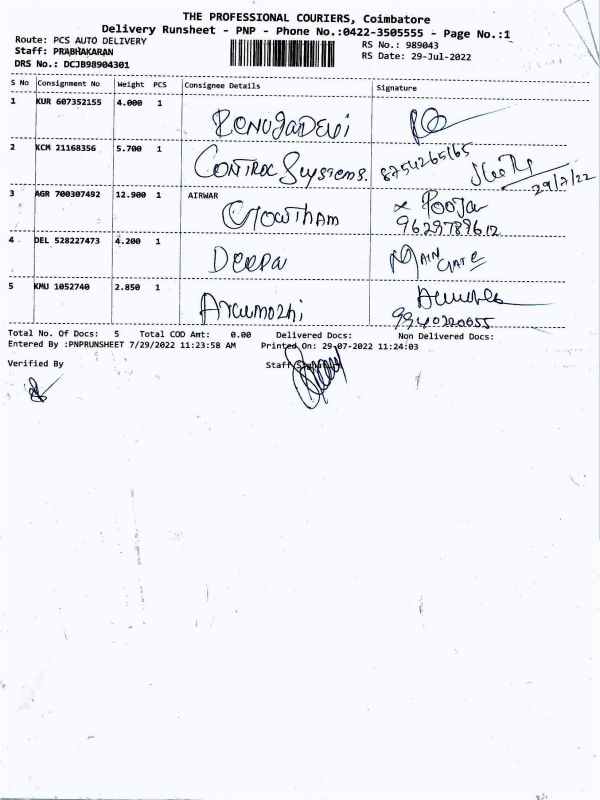 THE PROFESSIONAL COURIERS, Coimbatore
Delivery Runsheet - PNP - Phone No.:0422-3505555 - Page No.:1
Route: PCS AUTO DELIVERY
RS No.: 989043
Staff: PRABHAKARAN
RS Date: 29-Jul-2022
DRS No.: DCJB98904301
S No Consignment No Weight PCS Consignee Details Signature
1 KUR 607352155 4.000 1 RENUGADEVI
2 KCM 21168356 5.700 1 CONTROL SYSTEMS. 8754265165
29/7/22
3 AGR 700307492 12.900 1 AIRWAR
GOWTHAM x Pooja
9629789612
4 DEL 528227473 4.200 1 DEEPA MAIN GATE
5 KMU 1052740 2.850 1 Arumozhi
9940220055
Total No. Of Docs: 5 Total COD Amt: 0.00 Delivered Docs: Non Delivered Docs:
Entered By :PNPRUNSHEET 7/29/2022 11:23:58 AM Printed On: 29-07-2022 11:24:03
Verified By Staff Signature